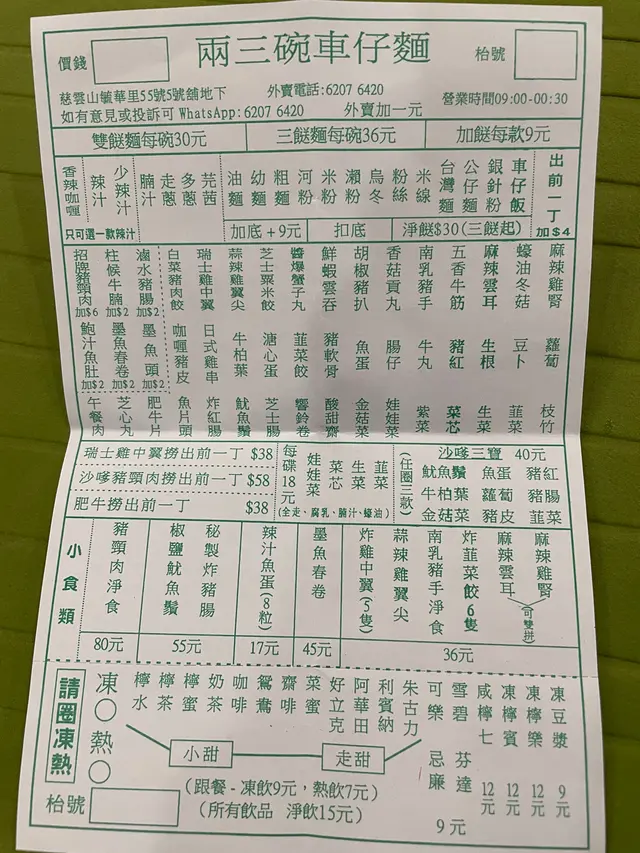 價錢
兩三碗車仔麵
枱號
慈雲山毓華里55號5號舖地下
外賣電話:6207 6420
營業時間09:00-00:30
如有意見或投訴可 WhatsApp: 6207 6420
外賣加一元
雙餸麵每碗30元
三餸麵每碗36元
加餸每款9元
香辣咖喱
辣汁
少辣汁
只可選一款辣汁
腩汁
走蔥
多蔥
芫茜
油麵
幼麵
粗麵
河粉
米粉
瀨粉
烏冬
粉絲
米線
台灣麵
公仔麵
銀針粉
車仔飯
出前一丁加$4
加底+9元
扣底
淨餸$30(三餸起)
招牌豬頸肉加$6
柱候牛腩加$2
滷水豬腸加$2
白菜豬肉餃
瑞士雞中翼
蒜辣雞翼尖
芝士粟米餃
醬爆蟹子丸
鮮蝦雲吞
胡椒豬扒
香菇貢丸
南乳豬手
五香牛筋
麻辣雲耳
蠔油冬菇
麻辣雞腎
鮑汁魚肚加$2
墨魚春卷加$2
墨魚頭加$2
咖喱豬皮
日式雞串
牛柏葉
溏心蛋
韮菜餃
豬軟骨
魚蛋
腸仔
牛丸
豬紅
生根
豆卜
蘿蔔
午餐肉
芝心丸
肥牛片
魚片頭
炸紅腸
魷魚鬚
芝士腸
響鈴卷
酸甜齋
金菇菜
娃娃菜
紫菜
菜芯
生菜
韮菜
枝竹
瑞士雞中翼撈出前一丁 $38
沙嗲豬頸肉撈出前一丁 $58
肥牛撈出前一丁 $38
每碟18元
娃娃菜
菜芯
生菜
韮菜
(全走、腐乳、腩汁、蠔油)
(任圈三款)
沙嗲三寶 40元
魷魚鬚 魚蛋 豬紅
牛柏葉 蘿蔔 豬腸
金菇菜 豬皮 韮菜
小食類
豬頸肉淨食
80元
椒鹽魷魚鬚
秘製炸豬腸
55元
辣汁魚蛋(8粒)
17元
墨魚春卷
45元
炸雞中翼(5隻)
蒜辣雞翼尖
南乳豬手淨食
炸韮菜餃6隻
麻辣雲耳
麻辣雞腎
(可雙拼)
36元
請圈凍熱
凍
熱
檸水
檸茶
檸蜜
奶茶
咖啡
鴛鴦
齋啡
菜蜜
好立克
阿華田
利賓納
朱古力
小甜
走甜
可樂
忌廉
雪碧
芬達
9元
咸檸七 12元
凍檸賓 12元
凍檸樂 12元
凍豆漿 9元
(跟餐-凍飲9元，熱飲7元)
(所有飲品 淨飲15元)
枱號